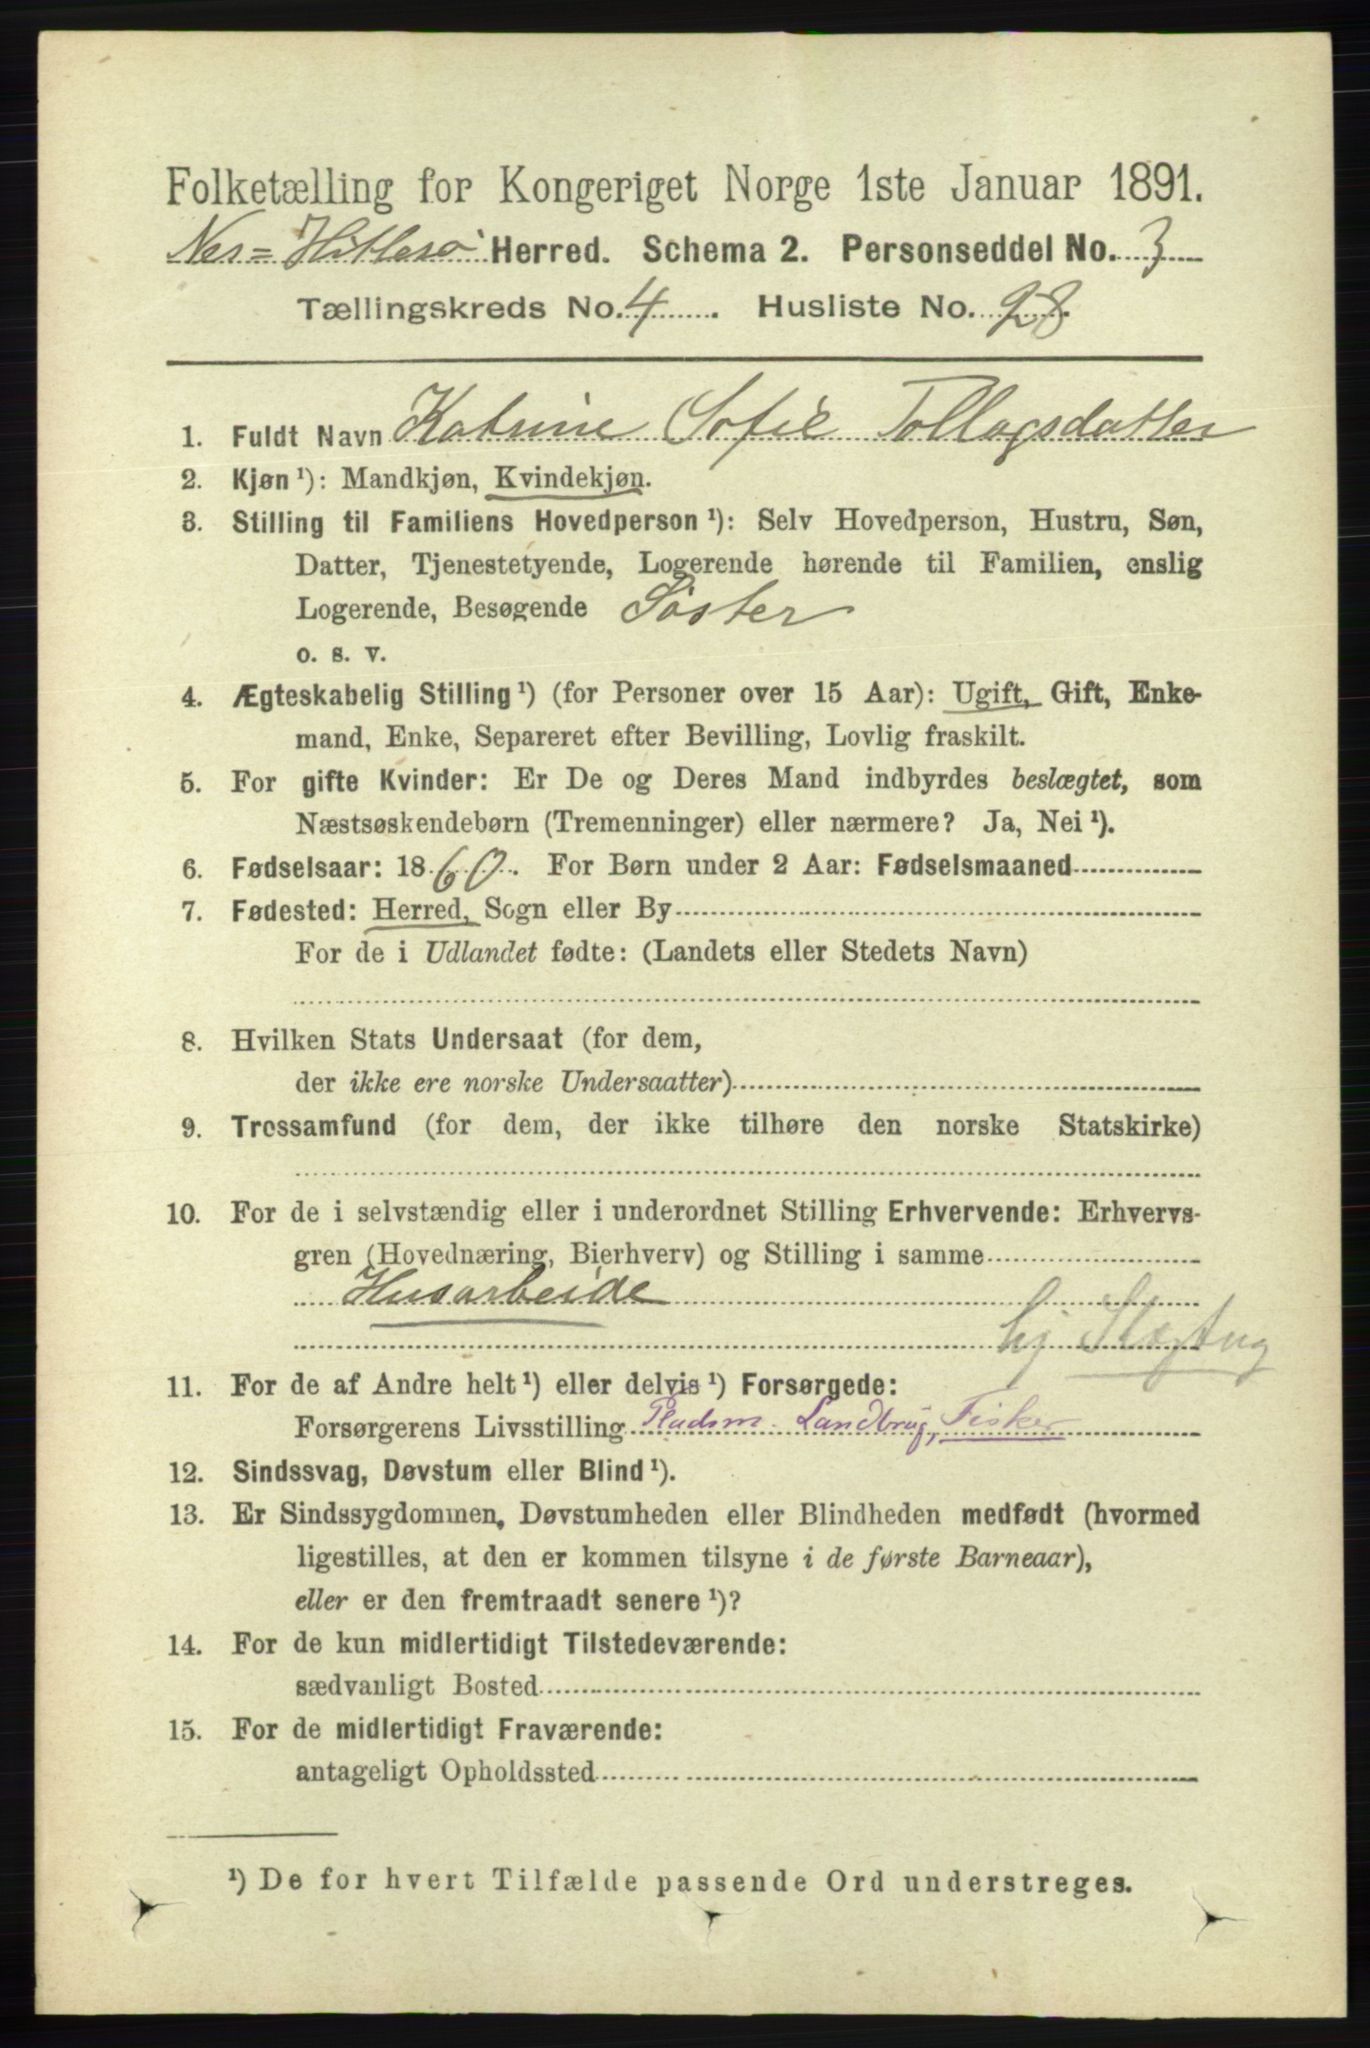 Folketælling for Kongeriget Norge 1ste Januar 1891.
Nes=Hitterø Herred. Schema 2. Personseddel No. 3
Tællingskreds No. 4. Husliste No. 28.
1. Fuldt Navn Katrine Sofie Tollagsdatter
2. Kjøn ¹): Mandkjøn, Kvindekjøn.
3. Stilling til Familiens Hovedperson ¹): Selv Hovedperson, Hustru, Søn,
Datter, Tjenestetyende, Logerende hørende til Familien, enslig
Logerende, Besøgende Søster
o. s. v.
4. Ægteskabelig Stilling ¹) (for Personer over 15 Aar): Ugift, Gift, Enke-
mand, Enke, Separeret efter Bevilling, Lovlig fraskilt.
5. For gifte Kvinder: Er De og Deres Mand indbyrdes beslægtet, som
Næstsøskendebørn (Tremenninger) eller nærmere? Ja, Nei ¹).
6. Fødselsaar: 1860. For Børn under 2 Aar: Fødselsmaaned
7. Fødested: Herred, Sogn eller By
For de i Udlandet fødte: (Landets eller Stedets Navn)
8. Hvilken Stats Undersaat (for dem,
der ikke ere norske Undersaatter)
9. Trossamfund (for dem, der ikke tilhøre den norske Statskirke)
10. For de i selvstændig eller i underordnet Stilling Erhvervende: Erhvervs-
gren (Hovednæring, Bierhverv) og Stilling i samme
Husarbeide
hj Slægtng
11. For de af Andre helt ¹) eller delvis ¹) Forsørgede:
Forsørgerens Livsstilling Pladsm. Landbrug, Fisker
12. Sindssvag, Døvstum eller Blind ¹).
13. Er Sindssygdommen, Døvstumheden eller Blindheden medfødt (hvormed
ligestilles, at den er kommen tilsyne i de første Barneaar),
eller er den fremtraadt senere ¹)?
14. For de kun midlertidigt Tilstedeværende:
sædvanligt Bosted
15. For de midlertidigt Fraværende:
antageligt Opholdssted
¹) De for hvert Tilfælde passende Ord understreges.